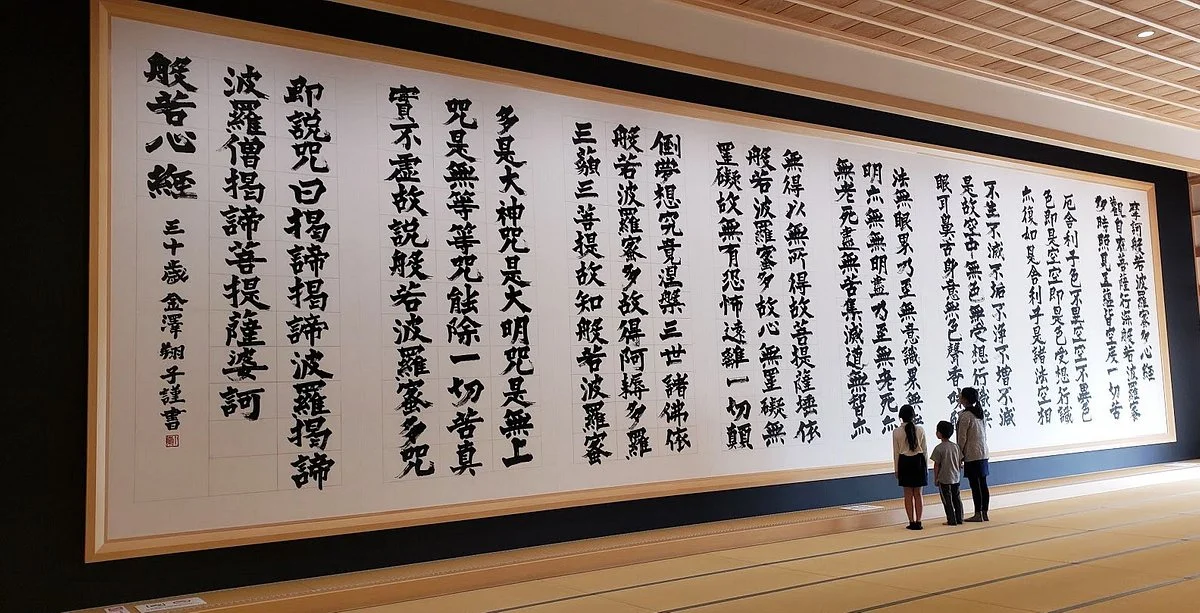 摩訶般若波羅蜜多心経
觀自在菩薩行深般若波羅蜜
多時照見五蘊皆空度一切苦
厄舎利子色不異空空不異色
色即是空空即是色受想行識
亦復如是舎利子是諸法空相
不生不滅不垢不浄不增不減
是故空中無色無受想行識
眼耳鼻舌身意無色聲香味
法無眼界乃至無意識界無
明亦無無明盡乃至無老死亦
無老死盡無苦集滅道無智亦
無得以無所得故菩提薩埵依
般若波羅蜜多故心無罣礙無
罣礙故無有恐怖遠離一切顛
倒夢想究竟涅槃三世諸佛依
般若波羅蜜多故得阿耨多羅
三藐三菩提故知般若波羅蜜
多是大神咒是大明咒是無上
咒是無等等咒能除一切苦真
實不虛故説般若波羅蜜多咒
即説咒曰揭諦揭諦波羅揭諦
波羅僧揭諦菩提薩婆訶
般若心經 三十歳 金澤翔子謹書